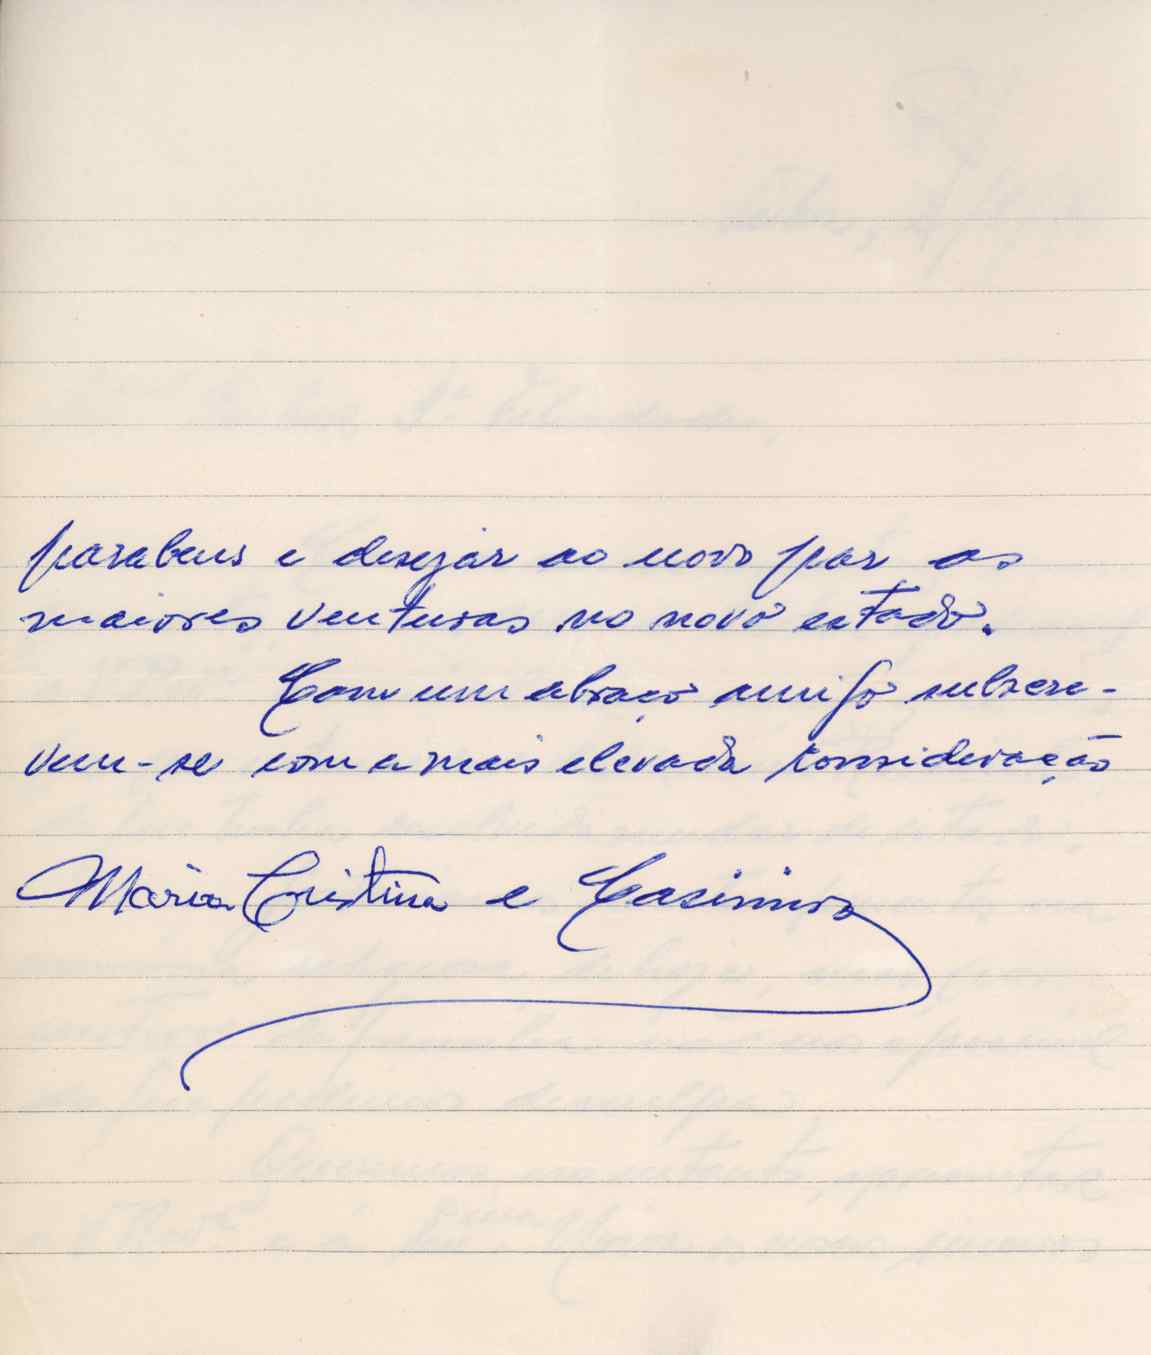 parabens e desejar ao novo par as
maiores venturas no novo estado.
Com um abraço amigo subscre-
vem-se com a mais elevada consideração
Maria Cristina e Casimiro